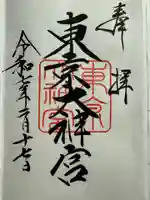 奉拝
東京大神宮
令和年月十七日
東京大神宮